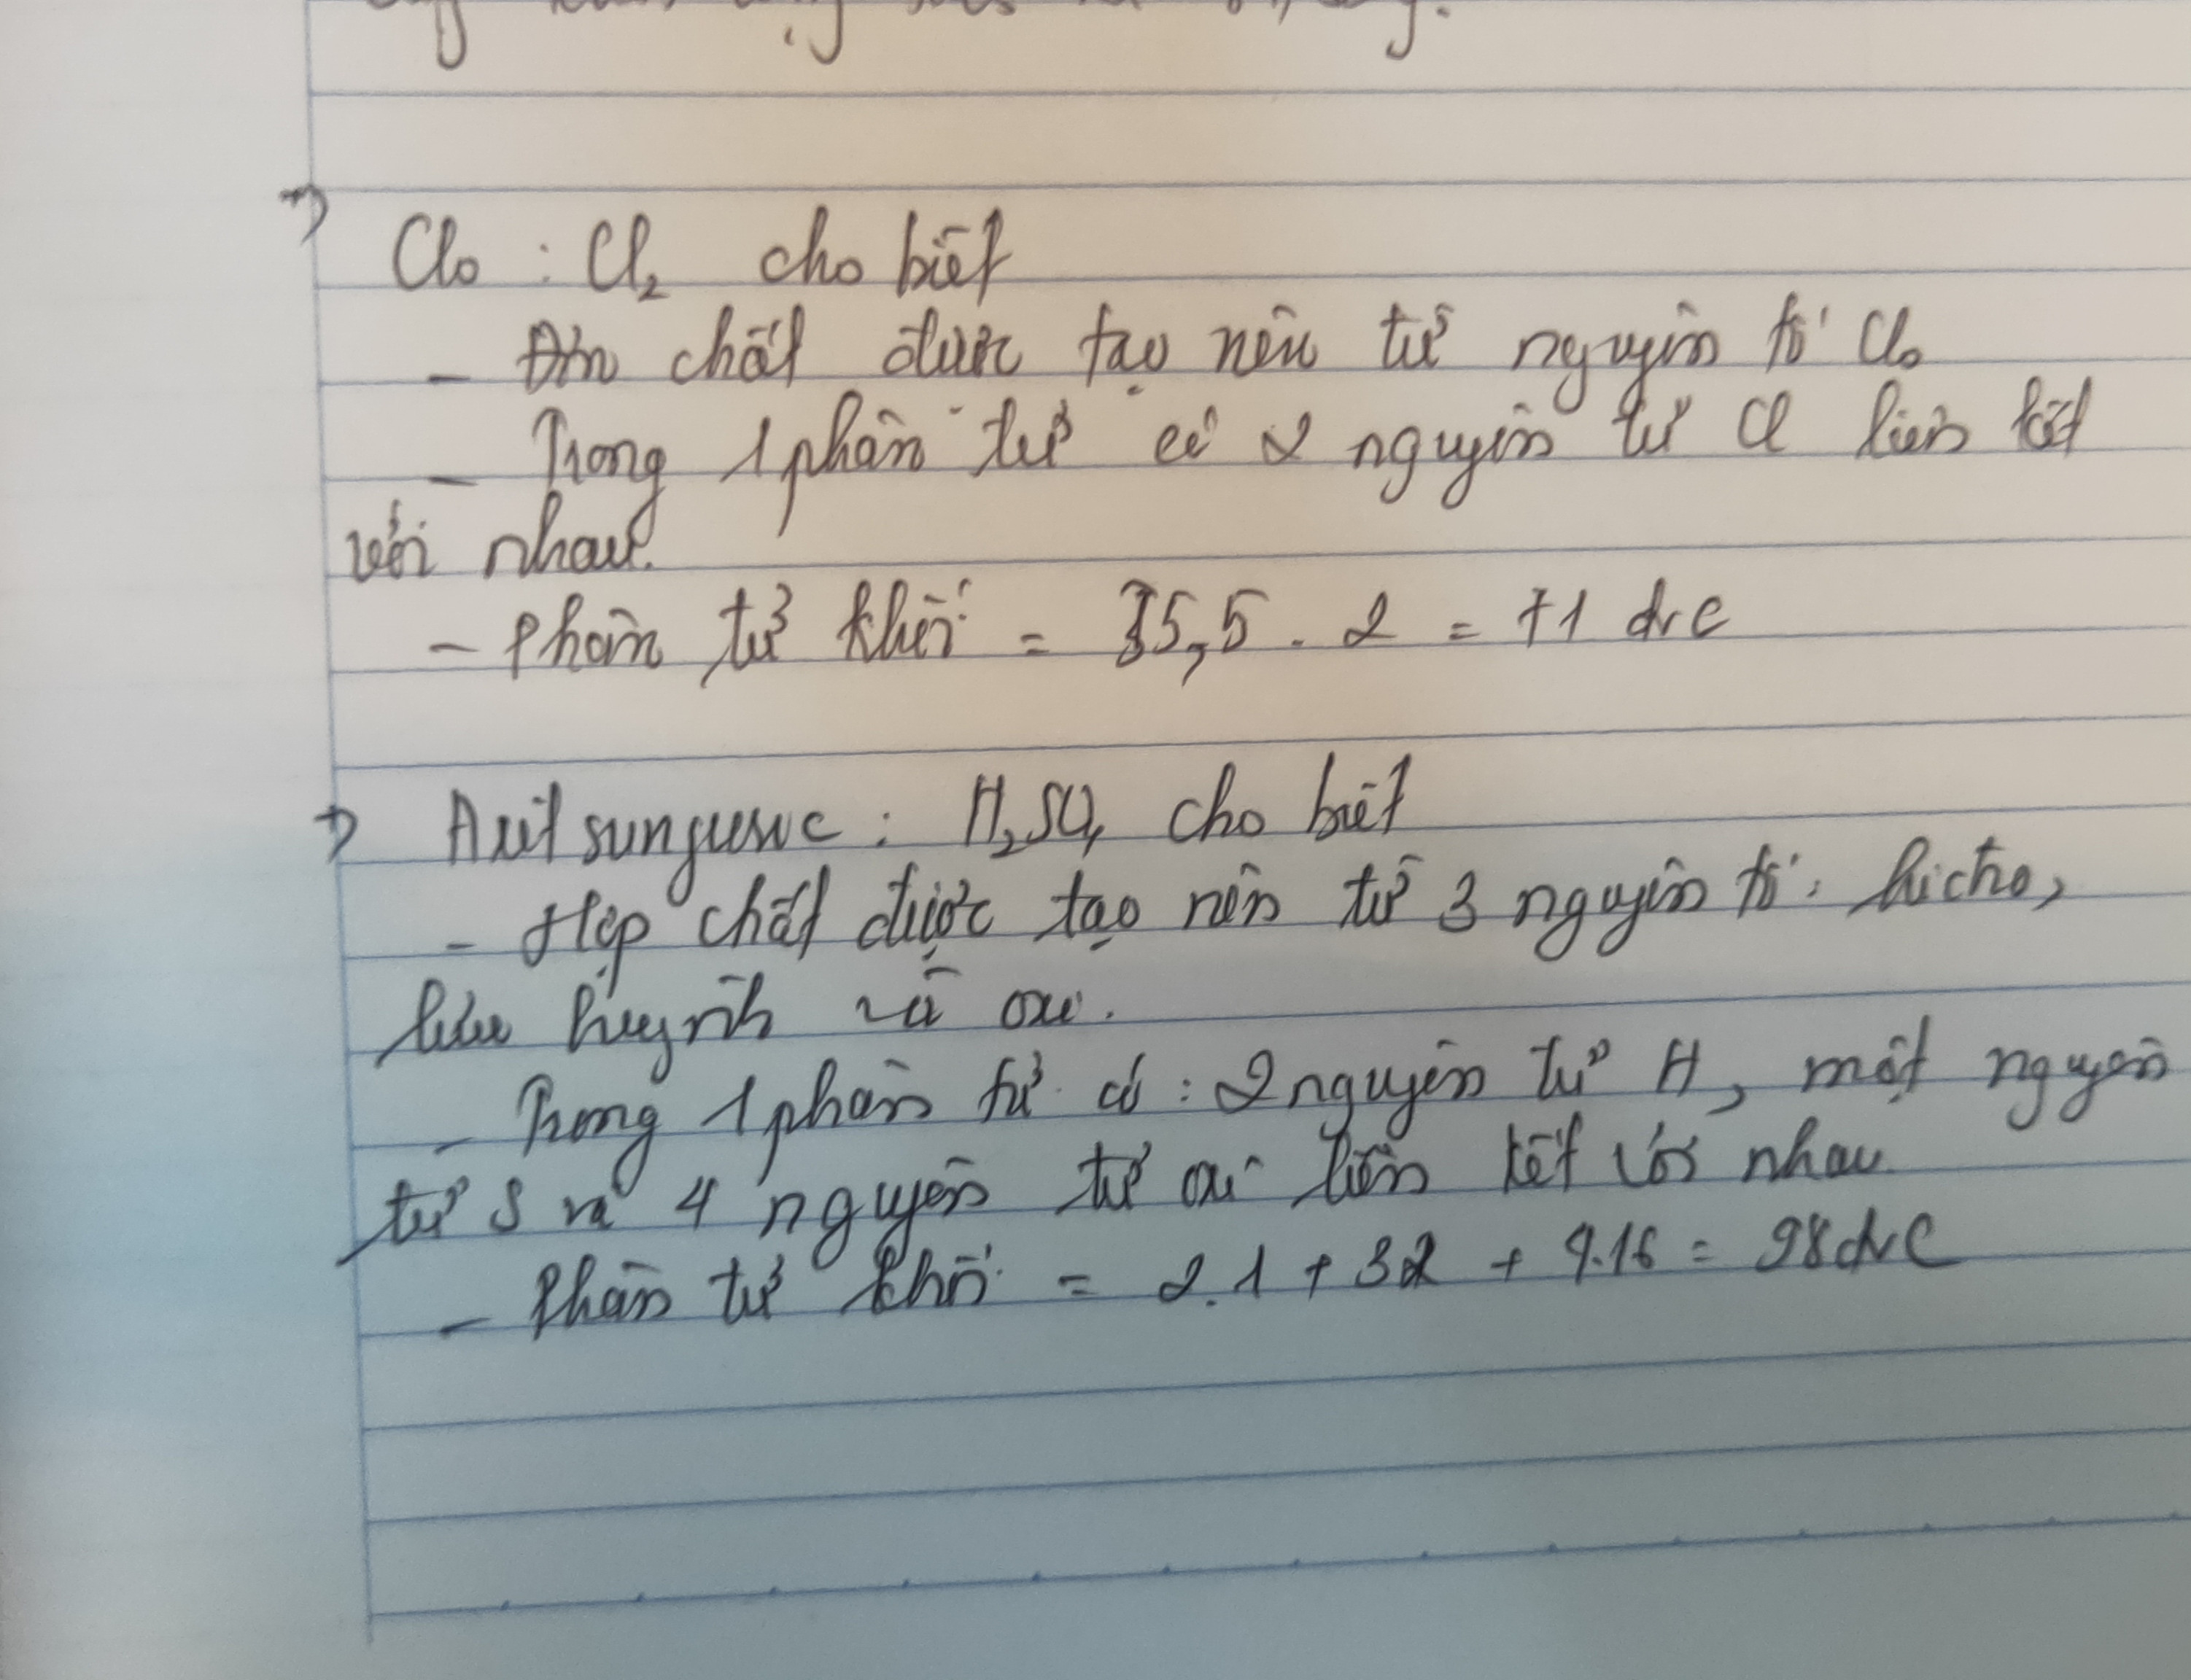 Clo : Cl₂ cho biết
- Đơn chất được tạo nên từ nguyên tố Clo
- Trong 1 phân tử có 2 nguyên tử Cl liên kết
với nhau.
- Phân tử khối = 35,5 . 2 = 71 đvC
Axit sunfuric : H₂SO₄ cho biết
- Hợp chất được tạo nên từ 3 nguyên tố: hiđro,
lưu huỳnh và oxi.
- Trong 1 phân tử có : 2 nguyên tử H, một nguyên
tử S và 4 nguyên tử oxi liên kết với nhau
- Phân tử khối = 2.1 + 32 + 4.16 = 98 đvC